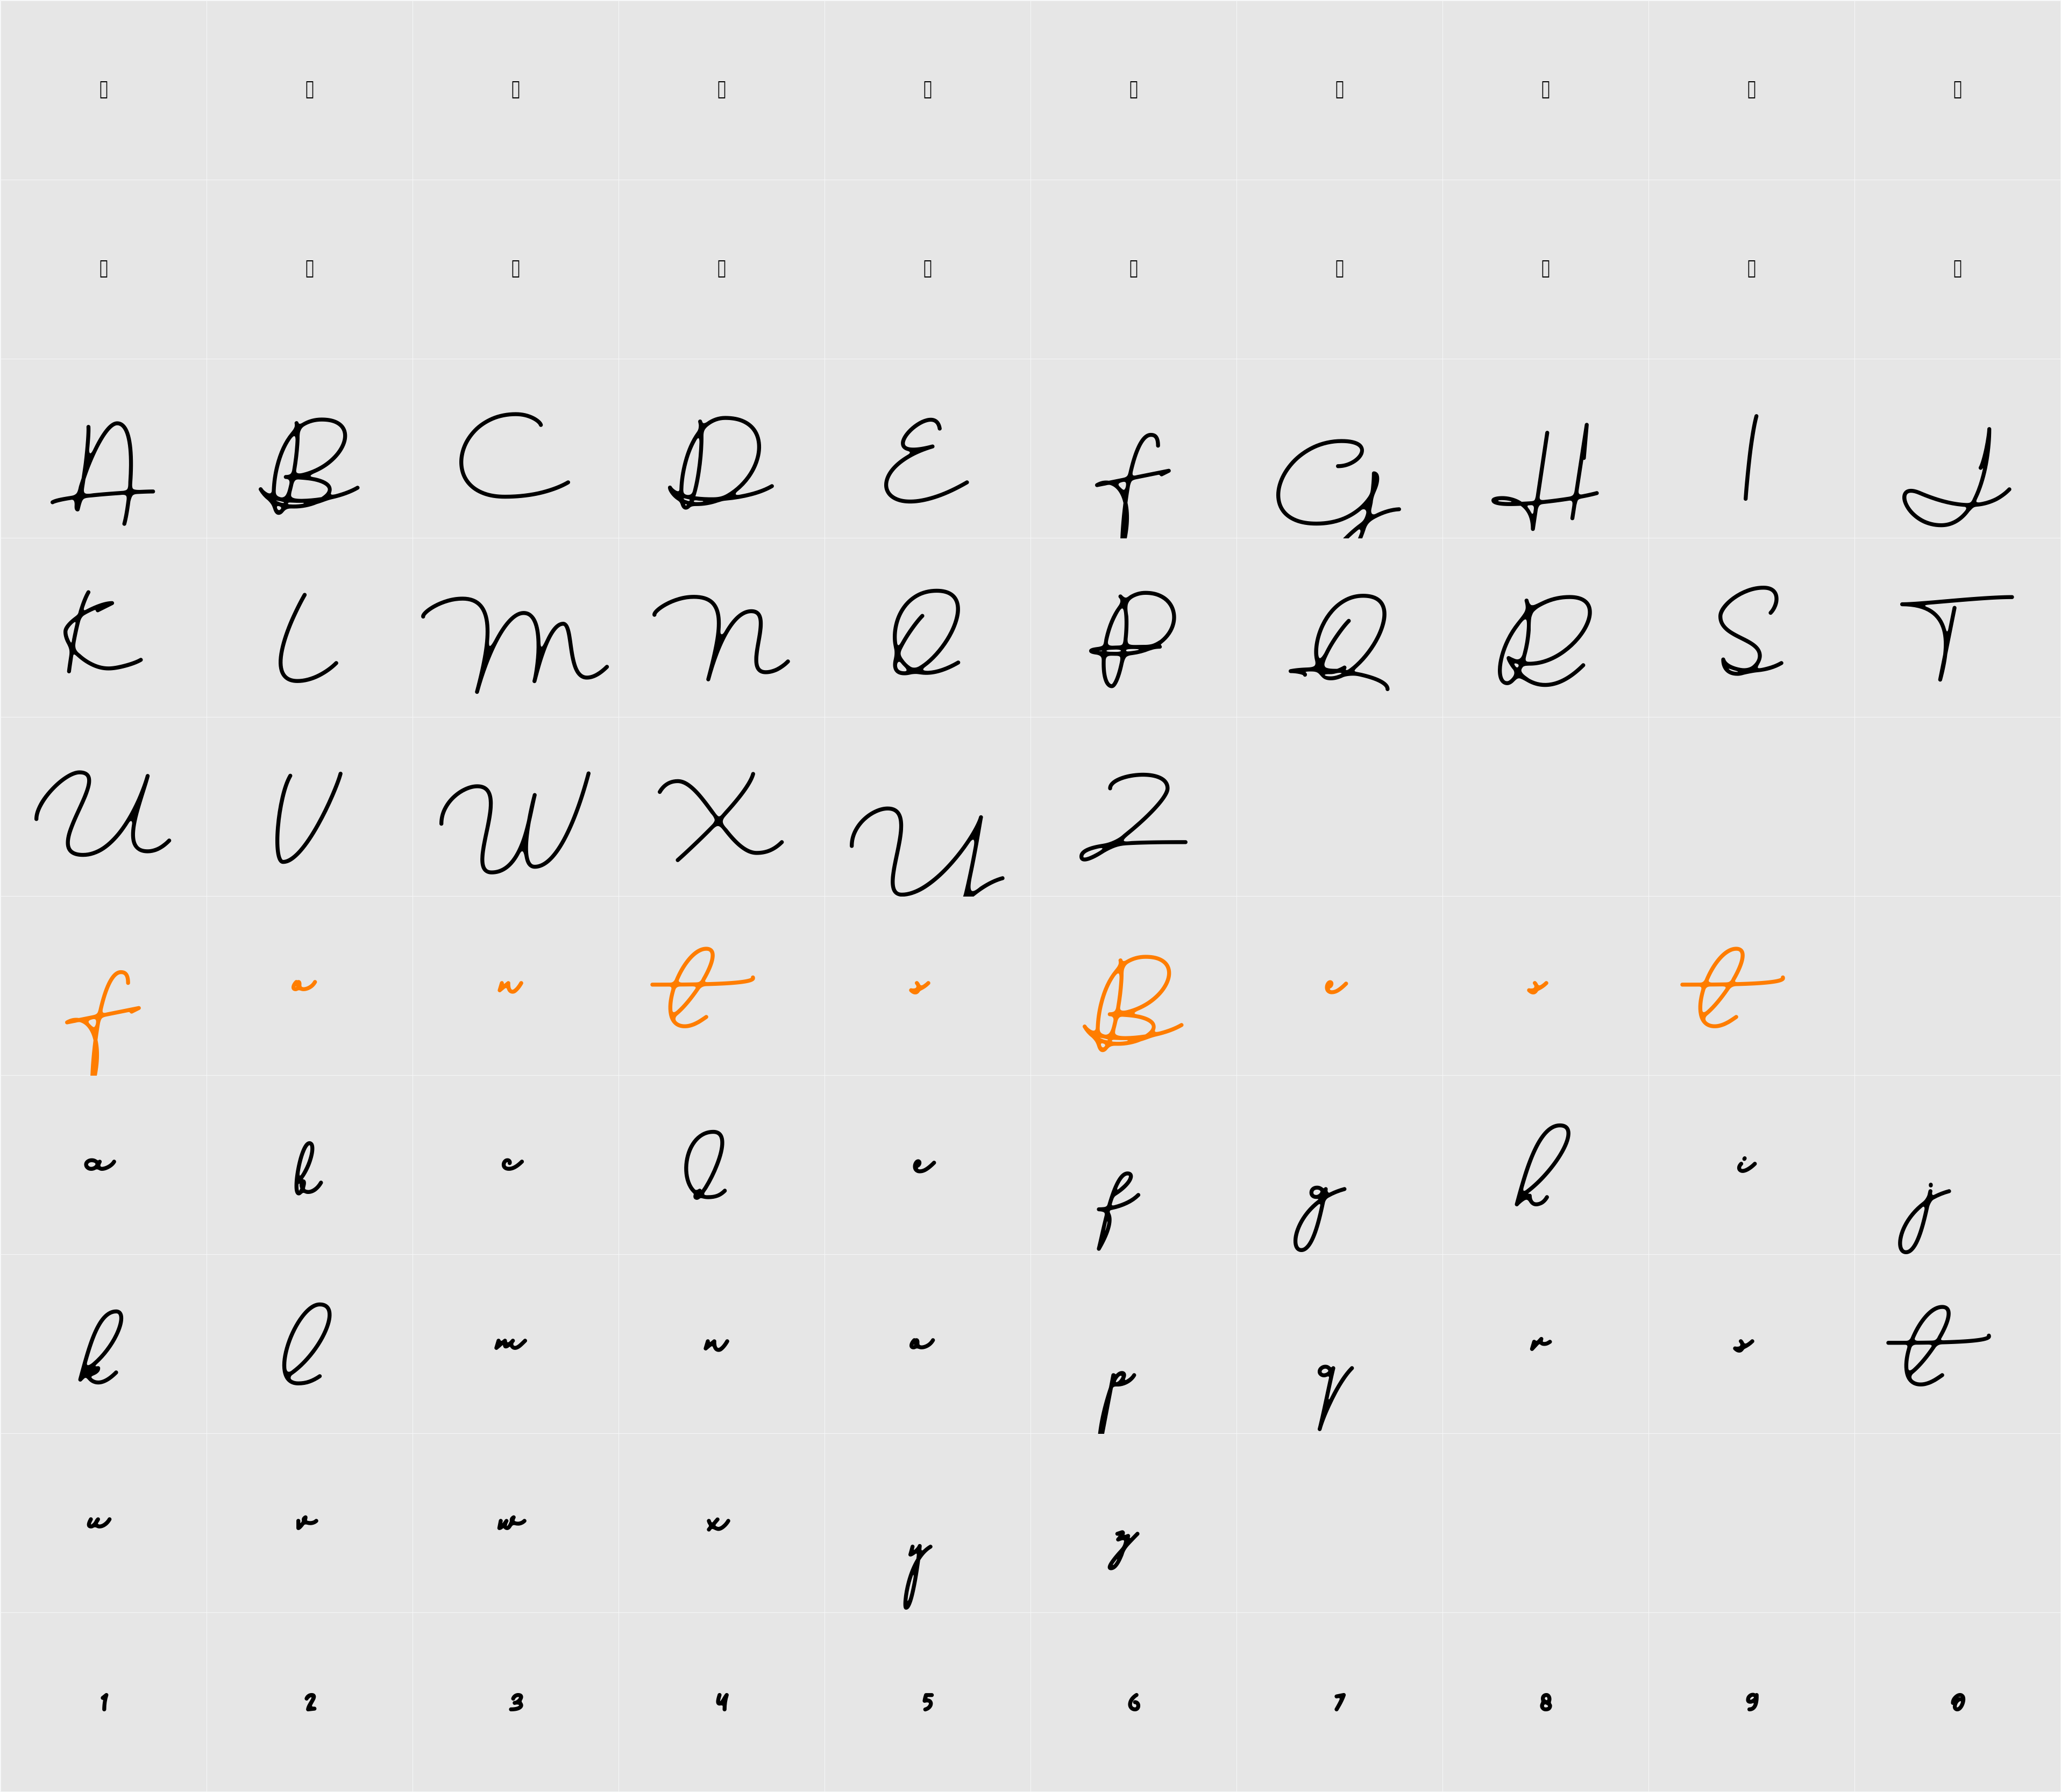 A B C D E F G H I J
K L M N O P Q R S T
U V W X Y Z
F o n t s B e s t
a b c d e f g h i j
k l m n o p q r s t
u v w x y z
1 2 3 4 5 6 7 8 9 0